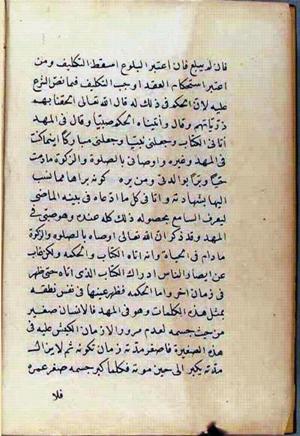 فان لم يبلغ فان اعتبر البلوغ اسقط التكليف ومن
اعتبر استحكام العقد اوجب التكليف فما نص الشرع
عليه لان الحكم في ذلك له قال الله تعالى الحقنا بهم
ذرياتهم وقال وآتيناه الحكم صبيا وقال في المهد
آتاني الكتاب وجعلني نبيا وجعلني مباركا اينما كنت
في المهد وغيره واوصاني بالصلوة والزكوة ما دمت
حيا وبرا بوالدتي ومن بره كونه براها مما نسب
اليها بشهادته واتا في كل ما ادعاه في بينه الماضي
ليعرف السامع بحصوله ذلك كله عنده وهو صبي في
المهد وقد ذكر ان الله تعالى اوصاه بالصلوة والزكوة
ما دام في الحياة وانه اتاه الكتاب والحكمة ولكن غاب
عن ابصار الناس ادراك الكتاب الذي اتاه حتى ظهر
في زمان اخر واما الحكمة فظهر عينها في نفس نطقه
بمثل هذه الكلمات وهو في المهد فالانسان صغير
من حيث جسمه لعدم مرور الازمان الكثير عليه في
هذه الصغيرة فاصغر مدته زمان تكونه ثم لا يزال
مدته يكبر الى حين موته فكلما كبر جسمه صغر عمره
فلا